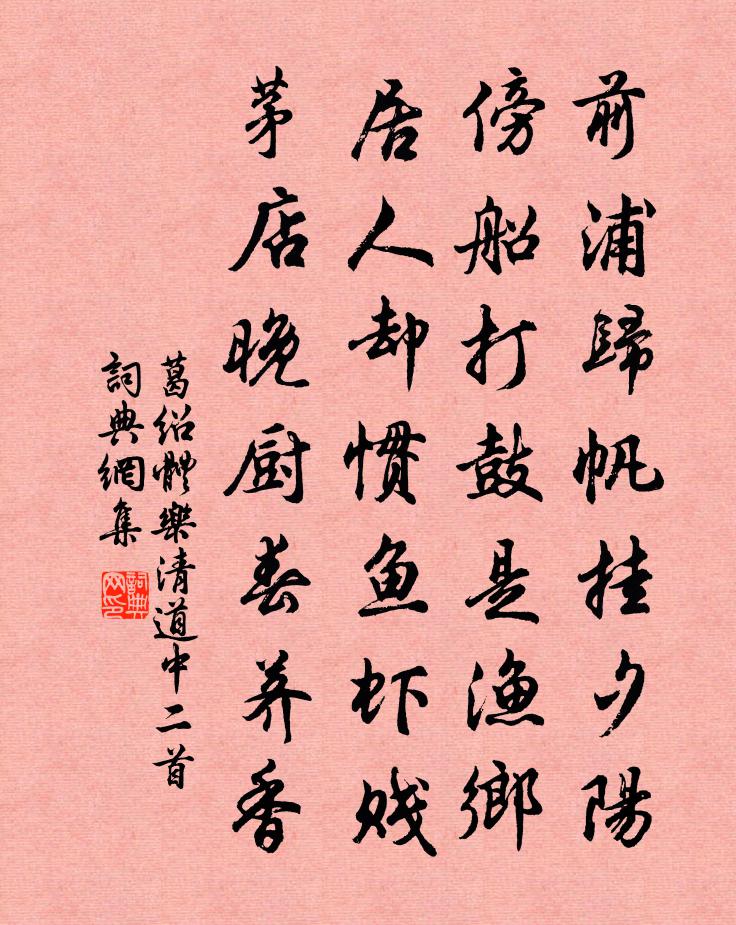 前浦歸帆挂夕陽
傍船打鼓是漁鄉
居人却慣鱼虾賤
茅店晚厨春荠香
葛绍體樂清道中二首
詞典網集
詞典网印